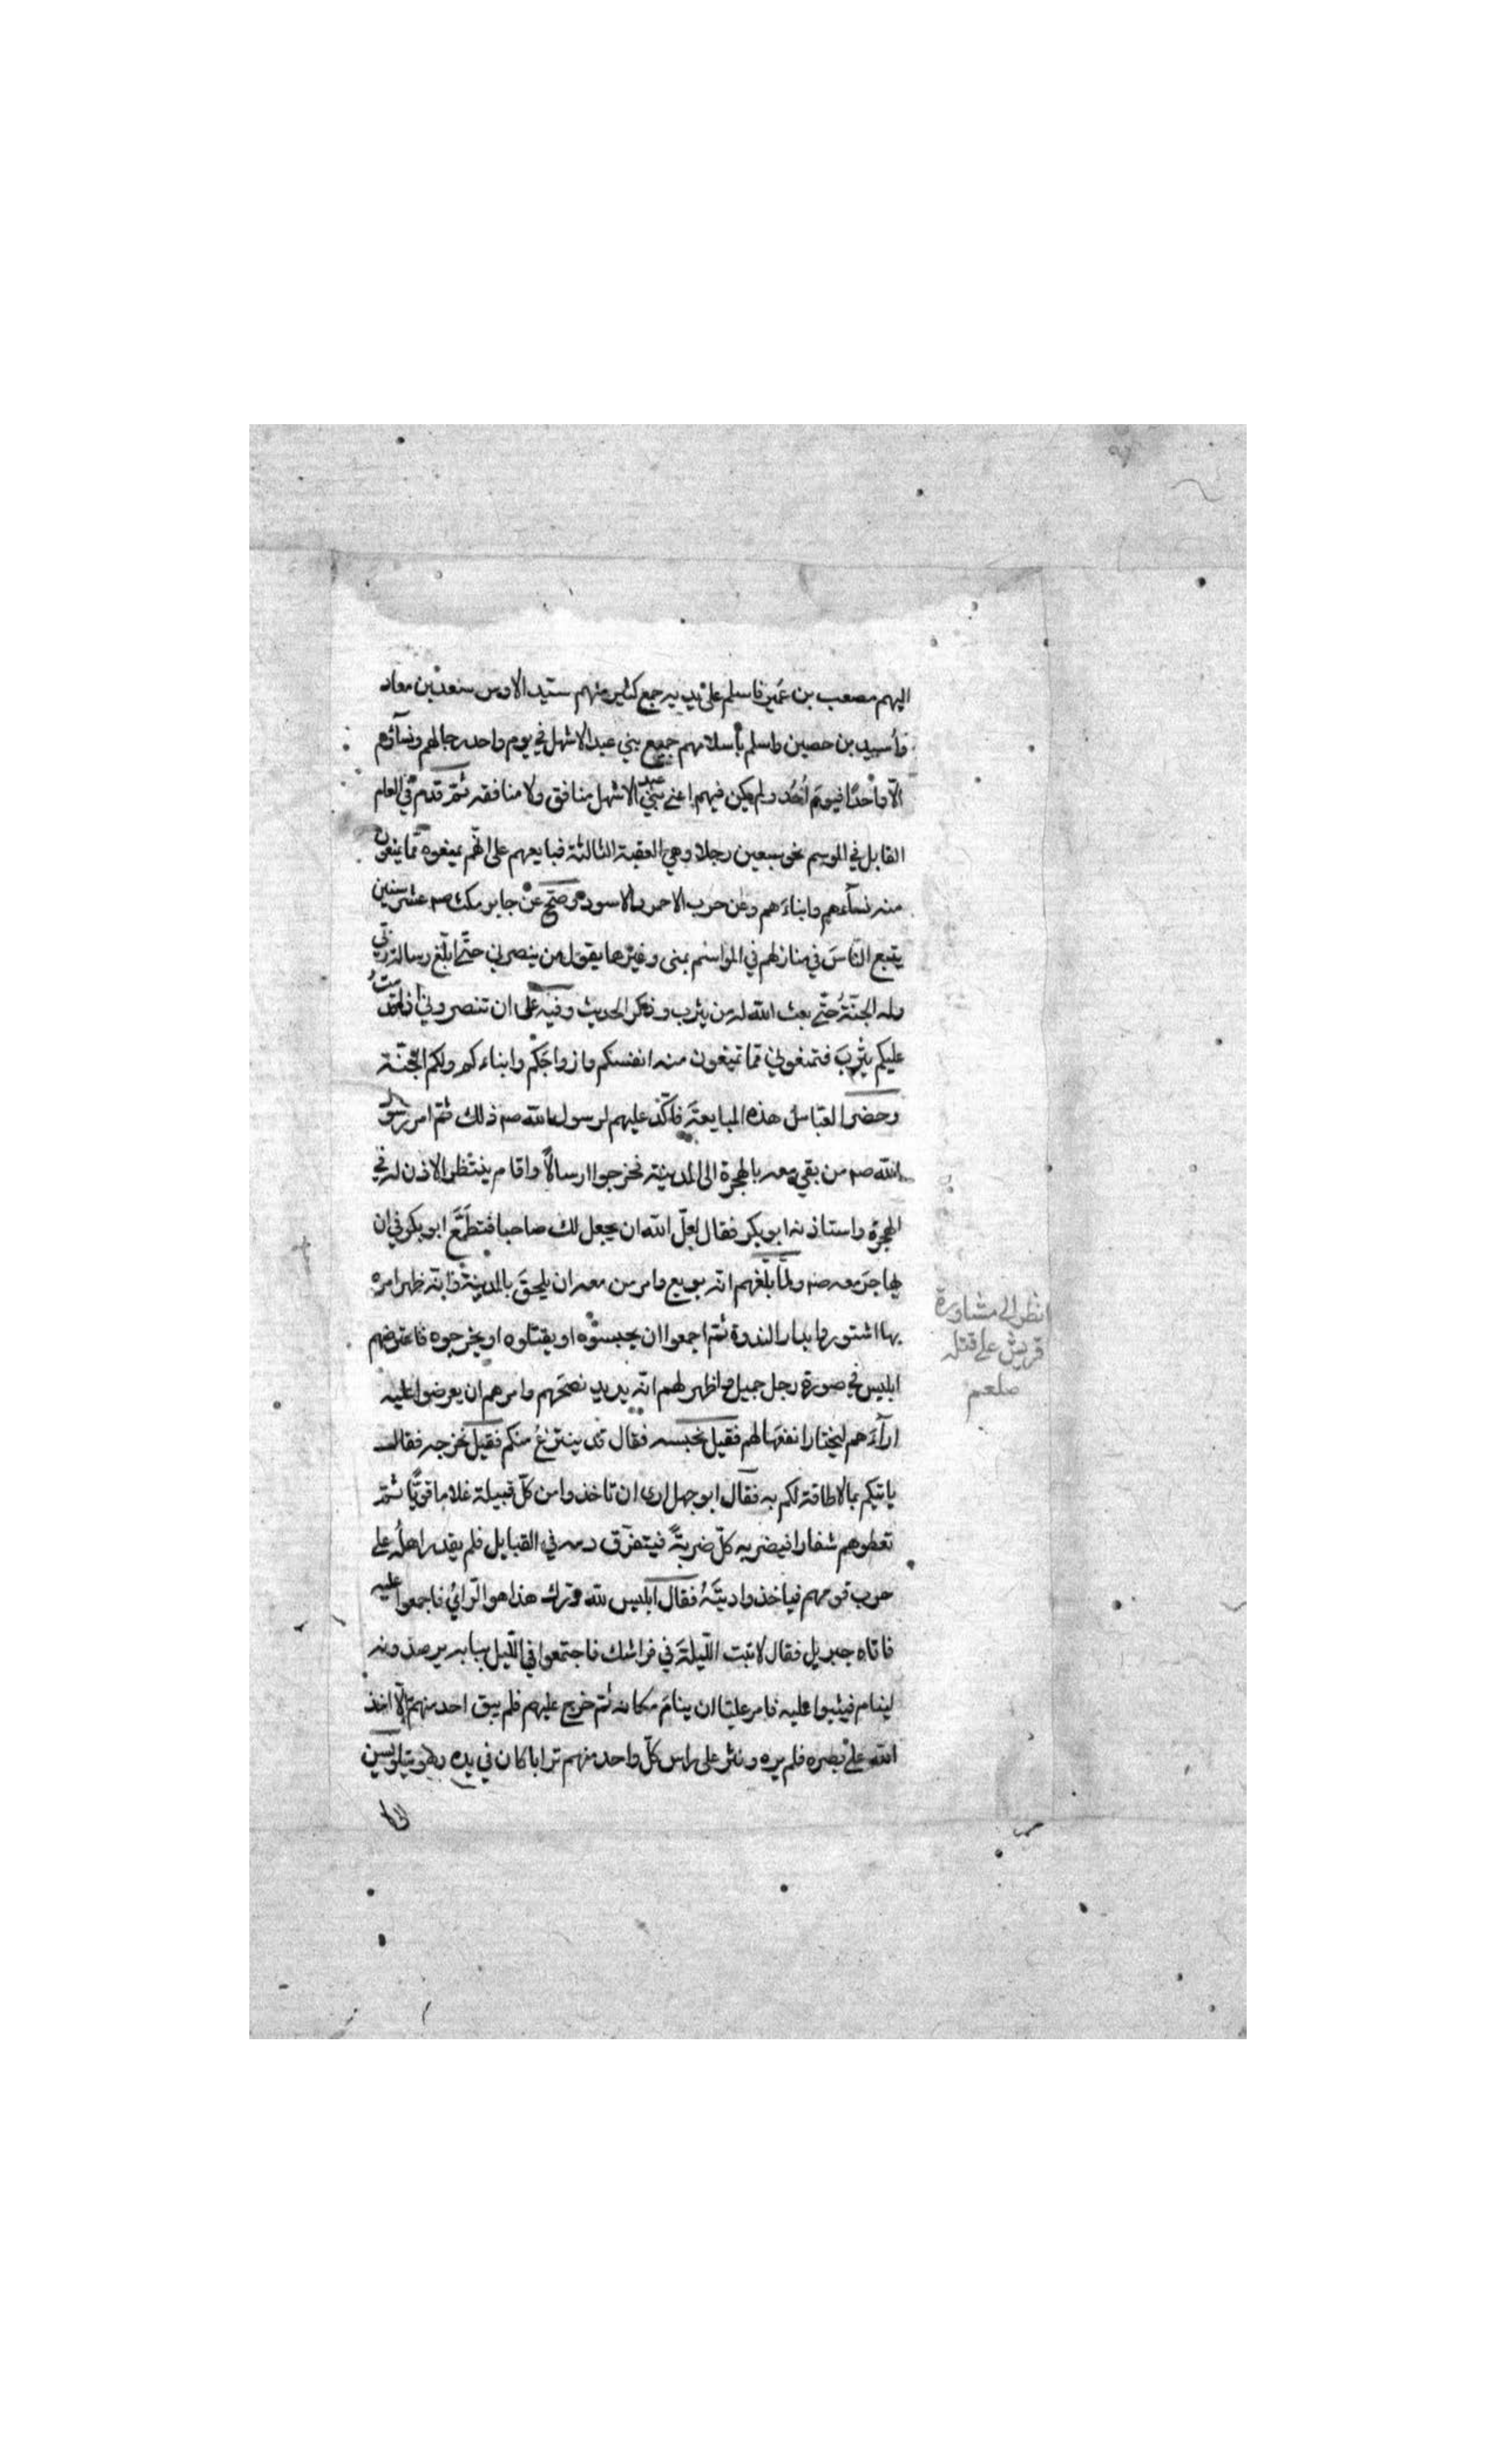 اليهم مصعب بن عمير فاسلم على يديه جمع كثير منهم سيد الاوس سعد بن معاد
وأسيد بن حصين واسلم بأسلامهم جميع بني عبد الاشهل في يوم واحد رجالهم ونسآؤهم
الّا واحدًا فيوم أُحُد ولم يكن فيهم اعني بني عبد الاشهل منافق ولا منافقه ثمّ قدم في العام
القابل في الموسم نحو سبعين رجلا وهي العقبة الثالثة فبايعهم على انّهم يمنعوه ممّا يمنعون
منه نسآءهم وابناءهم وعن حرب الاحمر والاسود وصحّ عن جابر مكث صم عشر سنين
يتبع النّاسَ في منازلهم في المواسم بمنى وغيرها يقول من ينصرني حتّى ابلّغ رسالة ربّي
وله الجنّةُ حتّى بعث الله له من يثرب وذكر الحديث وفيه على ان تنصروني اذا قدمتُ
عليكم بيثربَ فتمنعوني ممّا تمنعون منه انفسكم وازواجكم وابناءكم ولكم الجنّة
وحضر العبّاسُ هذه المبايعةَ فاكّد عليهم لرسول الله صم ذلك ثمّ امر رسول
الله صم من بقي معه بالهجرة الى المدينة فخرجوا ارسالًا واقام ينتظر الاذن له في
الهجرة واستاذنه ابو بكر فقال لعلّ الله ان يجعل لك صاحبا فتطمّع ابو بكر في ان
يهاجر معه صم ولمّا بلغهم انّه بويع وامر من معه ان يلحقَ بالمدينة وانّه ظهر امره
بها اشتوروا بدار الندوة ثمّ اجمعوا ان يحبسوه او يقتلوه او يخرجوه فاعترضهم
ابليس في صورة رجل جميل واظهر لهم انّه يريد نصحَهم وامرهم ان يعرضوا عليه
ارآءَهم ليختار انفعَها لهم فقيل نحبسه فقال قد ينتزعُ منكم فقيل نخرجه فقال
ياتيكم بما لا طاقة لكم به فقال ابو جهل ارى ان تاخذوا من كلّ قبيلة غلاما قويًّا ثمّ
تعطوهم شفارا فيضربه كلّ ضربةً فيتفرّق دمه في القبايل فلم يقدر اهلُه على
حرب قومهم فياخذوا ديتَهُ فقال ابليس لله درك هذا هو الرّائي فاجمعوا عليه
فاتاه جبريل فقال لا تبت اللّيلةَ في فراشك فاجتمعوا في اللّيل ببابه يرصدونه
لينام فيثبوا عليه فامر عليّا ان ينامَ مكانه ثم خرج عليهم فلم يبق احد منهم الّا اخذ
الله على بصره فلم يره ونثر على راس كلّ واحد منهم ترابا كان في يده وهو يتلو يسين
الى
انظر الى مشاورة
قريش على قتله
صلعم